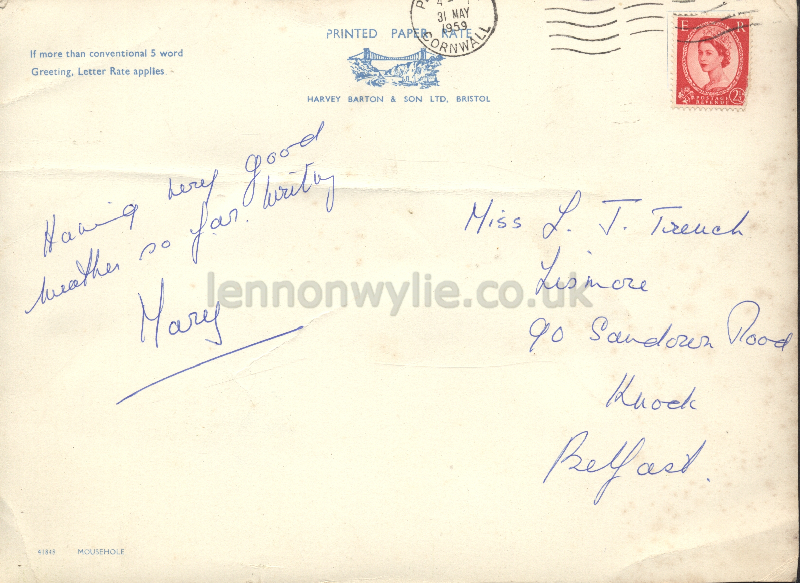 PRINTED PAPER RATE
If more than conventional 5 word
Greeting, Letter Rate applies
HARVEY BARTON & SON LTD, BRISTOL
31 MAY
1959
CORNWALL
E R
POSTAGE
REVENUE
2½
Having very good
weather so far. Writing
Mary
Miss L. J. Trench
Lismore
90 Sandown Road
Knock
Belfast.
lennonwylie.co.uk
MOUSEHOLE